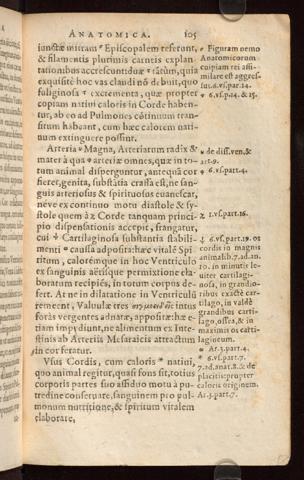 ANATOMICA. 105
iunctæ mitram * Episcopalem referunt,
& filamentis plurimis carneis explan-
tationibus accrescunt duæ
exit quisitè hos vas claudi
fuliginosa * excrementa, quæ propter
copiam nativi caloris in Corde haben-
tur, ab eo ad Pulmones cōtinuum tran-
situm habeant, cum hæc calorem nati-
vum extinguere possint.
Arteria * Magna, Arteriarum radix &
mater à qua * arteriæ omnes, quæ in to-
tum animal disperguntur, antequā cor
fieret, genita, substātia crassa est, ne san-
guis arteriosus & spirituosus evanescat,
neve ex continuo motu diastole & sy-
stole quem à z Corde tanquam princi-
pio dispensationis accepit, frangatur,
cui Cartilaginosa substantia stabili-
menti * caussa adposita: hæc vitalē Spi-
ritum, caloremque in hoc Ventriculo
ex sanguinis aërisque permixtione ela-
boratum recipiēs, in totum corpus de-
fert. At ne in dilatatione in Ventriculū
remeent, Valvulæ tres intus
foràs vergentes adnatæ, appositæ: hæ e-
tiam impediunt, ne alimentum ex Inte-
stinis ab Arteriis Mesaraicis attractum
in cor feratur.
Usus Cordis, cum caloris * nativi,
quo animal regitur, quasi fons sit, totius
corporis partes suo assiduo motu à pu-
tredine conservare, sanguinem pro pul-
monum nutritione, & spiritum vitalem
elaborare,
* Figuram nemo
Anatomicorum
cuipiam rei assi-
milare est aggres-
sus. 6.vs.par.14.
* 6.vs.p.14. & 15.
* de diss.ven.&
art.9.
* 6.vs.part.4.
z 1.vs.part.16.
6.vs.part.19. os
cordis in magnis
animalib. 7.ad.an.
10. in minutis le-
viter cartilagi-
nosa, in grandio-
ribus exactè car-
tilago, in valdè
grandibus carti-
lago, ossea, & in
maximis os carti-
laginosum.
* Ar.3.part.4.
* 6.vs.part.7.
7.ad.anat.8. & de
placitis: propter
caloris originem.
Ar.3.part.7.